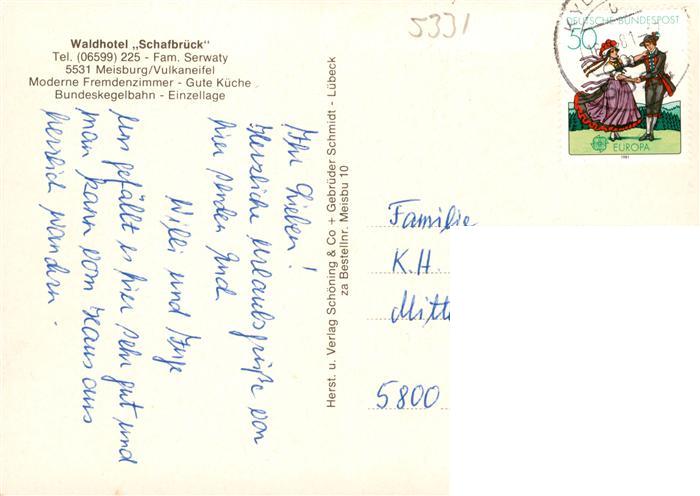 5331
Waldhotel „Schafbrück"
Tel. (06599) 225 - Fam. Serwaty
5531 Meisburg/Vulkaneifel
Moderne Fremdenzimmer - Gute Küche
Bundeskegelbahn - Einzellage
DEUTSCHE BUNDESPOST
50
EUROPA
1981
Ihr Lieben!
Herzliche Urlaubsgrüße von
hier senden Euch
Willi und Inge
Uns gefällt es hier sehr gut und
man kann vom Haus aus
herrlich wandern.
Herst. u. Verlag Schöning & Co + Gebrüder Schmidt - Lübeck
zu Bestellnr. Meisbu 10
Familie
K.H.
Mitt
5800